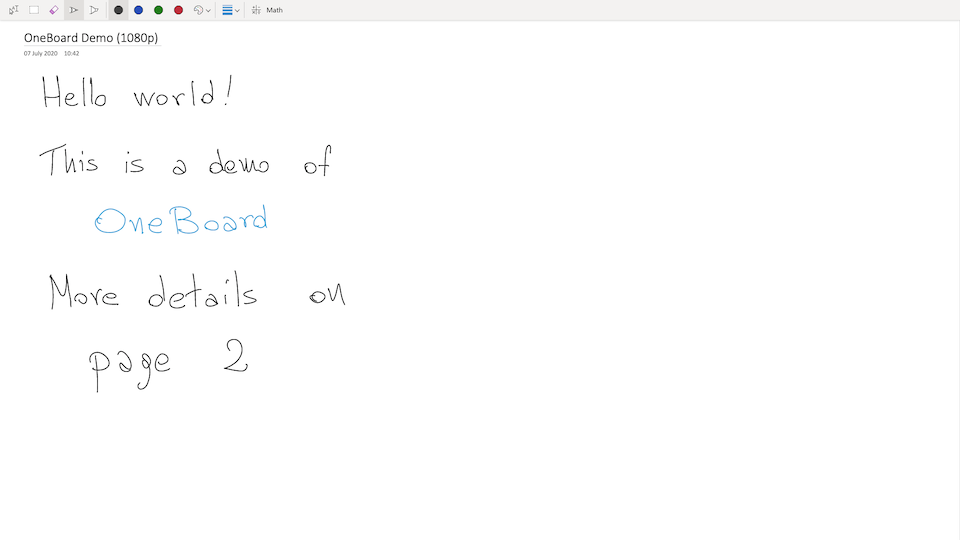 Math
OneBoard Demo (1080p)
07 July 2020 10:42
Hello world!
This is a demo of
OneBoard
More details on
page 2